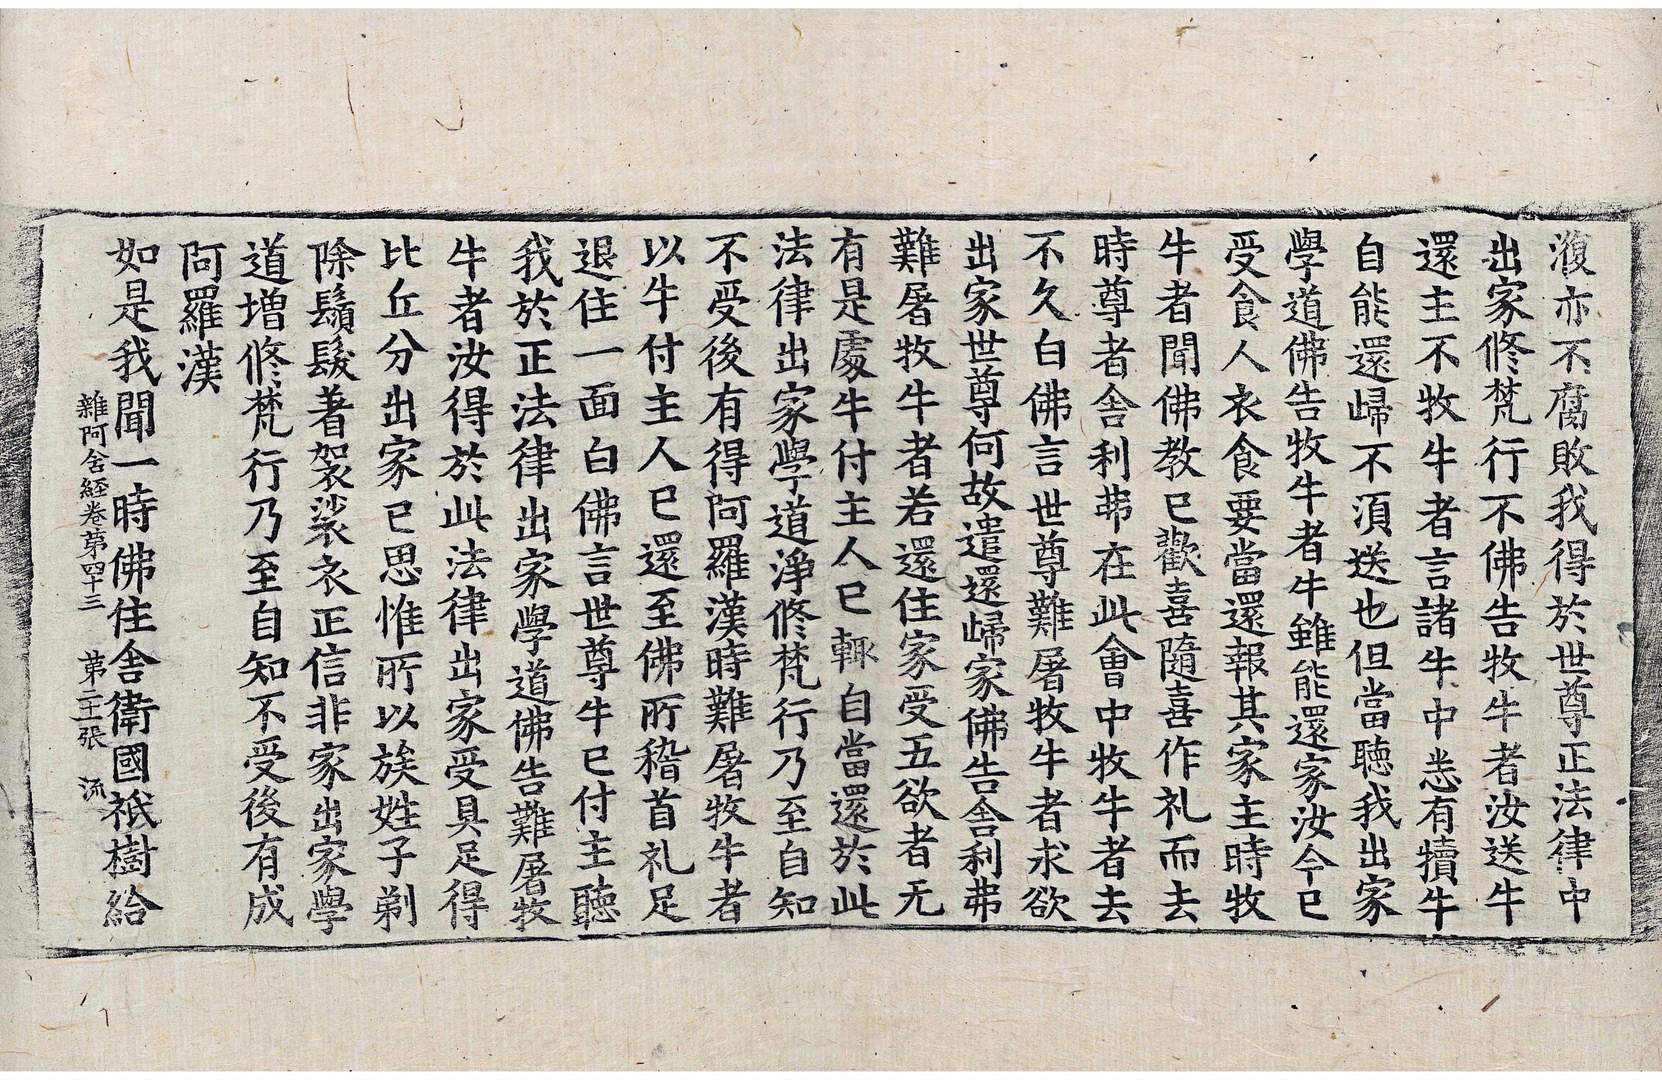 澓亦不腐敗我得於世尊正法律中
出家修梵行不佛告牧牛者汝送牛
還主不牧牛者言諸牛中悉有犢牛
自能還歸不湏送也但當聽我出家
學道佛告牧牛者牛雖能還家汝今已
受食人衣食要當還報其家主時牧
牛者聞佛教已歡喜隨喜作礼而去
時尊者舍利弗在此會中牧牛者去
不久白佛言世尊難屠牧牛者求欲
出家世尊何故遣還歸家佛告舍利弗
難屠牧牛者若還住家受五欲者无
有是處牛付主人已輙自當還於此
法律出家學道淨修梵行乃至自知
不受後有得阿羅漢時難屠牧牛者
以牛付主人已還至佛所稽首礼足
退住一面白佛言世尊牛已付主聽
我於正法律出家學道佛告難屠牧
牛者汝得於此法律出家受具足得
比丘分出家已思惟所以族姓子剃
除鬚髮著袈裟衣正信非家出家學
道增修梵行乃至自知不受後有成
阿羅漢
如是我聞一時佛住舍衛國祇樹給
雜阿含経卷第四十三　第二十一張　流